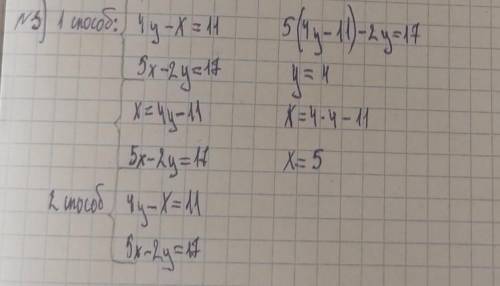 №3) 1 способ: 4y-x=11
5x-2y=17
x=4y-11
5x-2y=17
5(4y-11)-2y=17
y=4
x=4·4-11
x=5
2 способ 4y-x=11
5x-2y=17